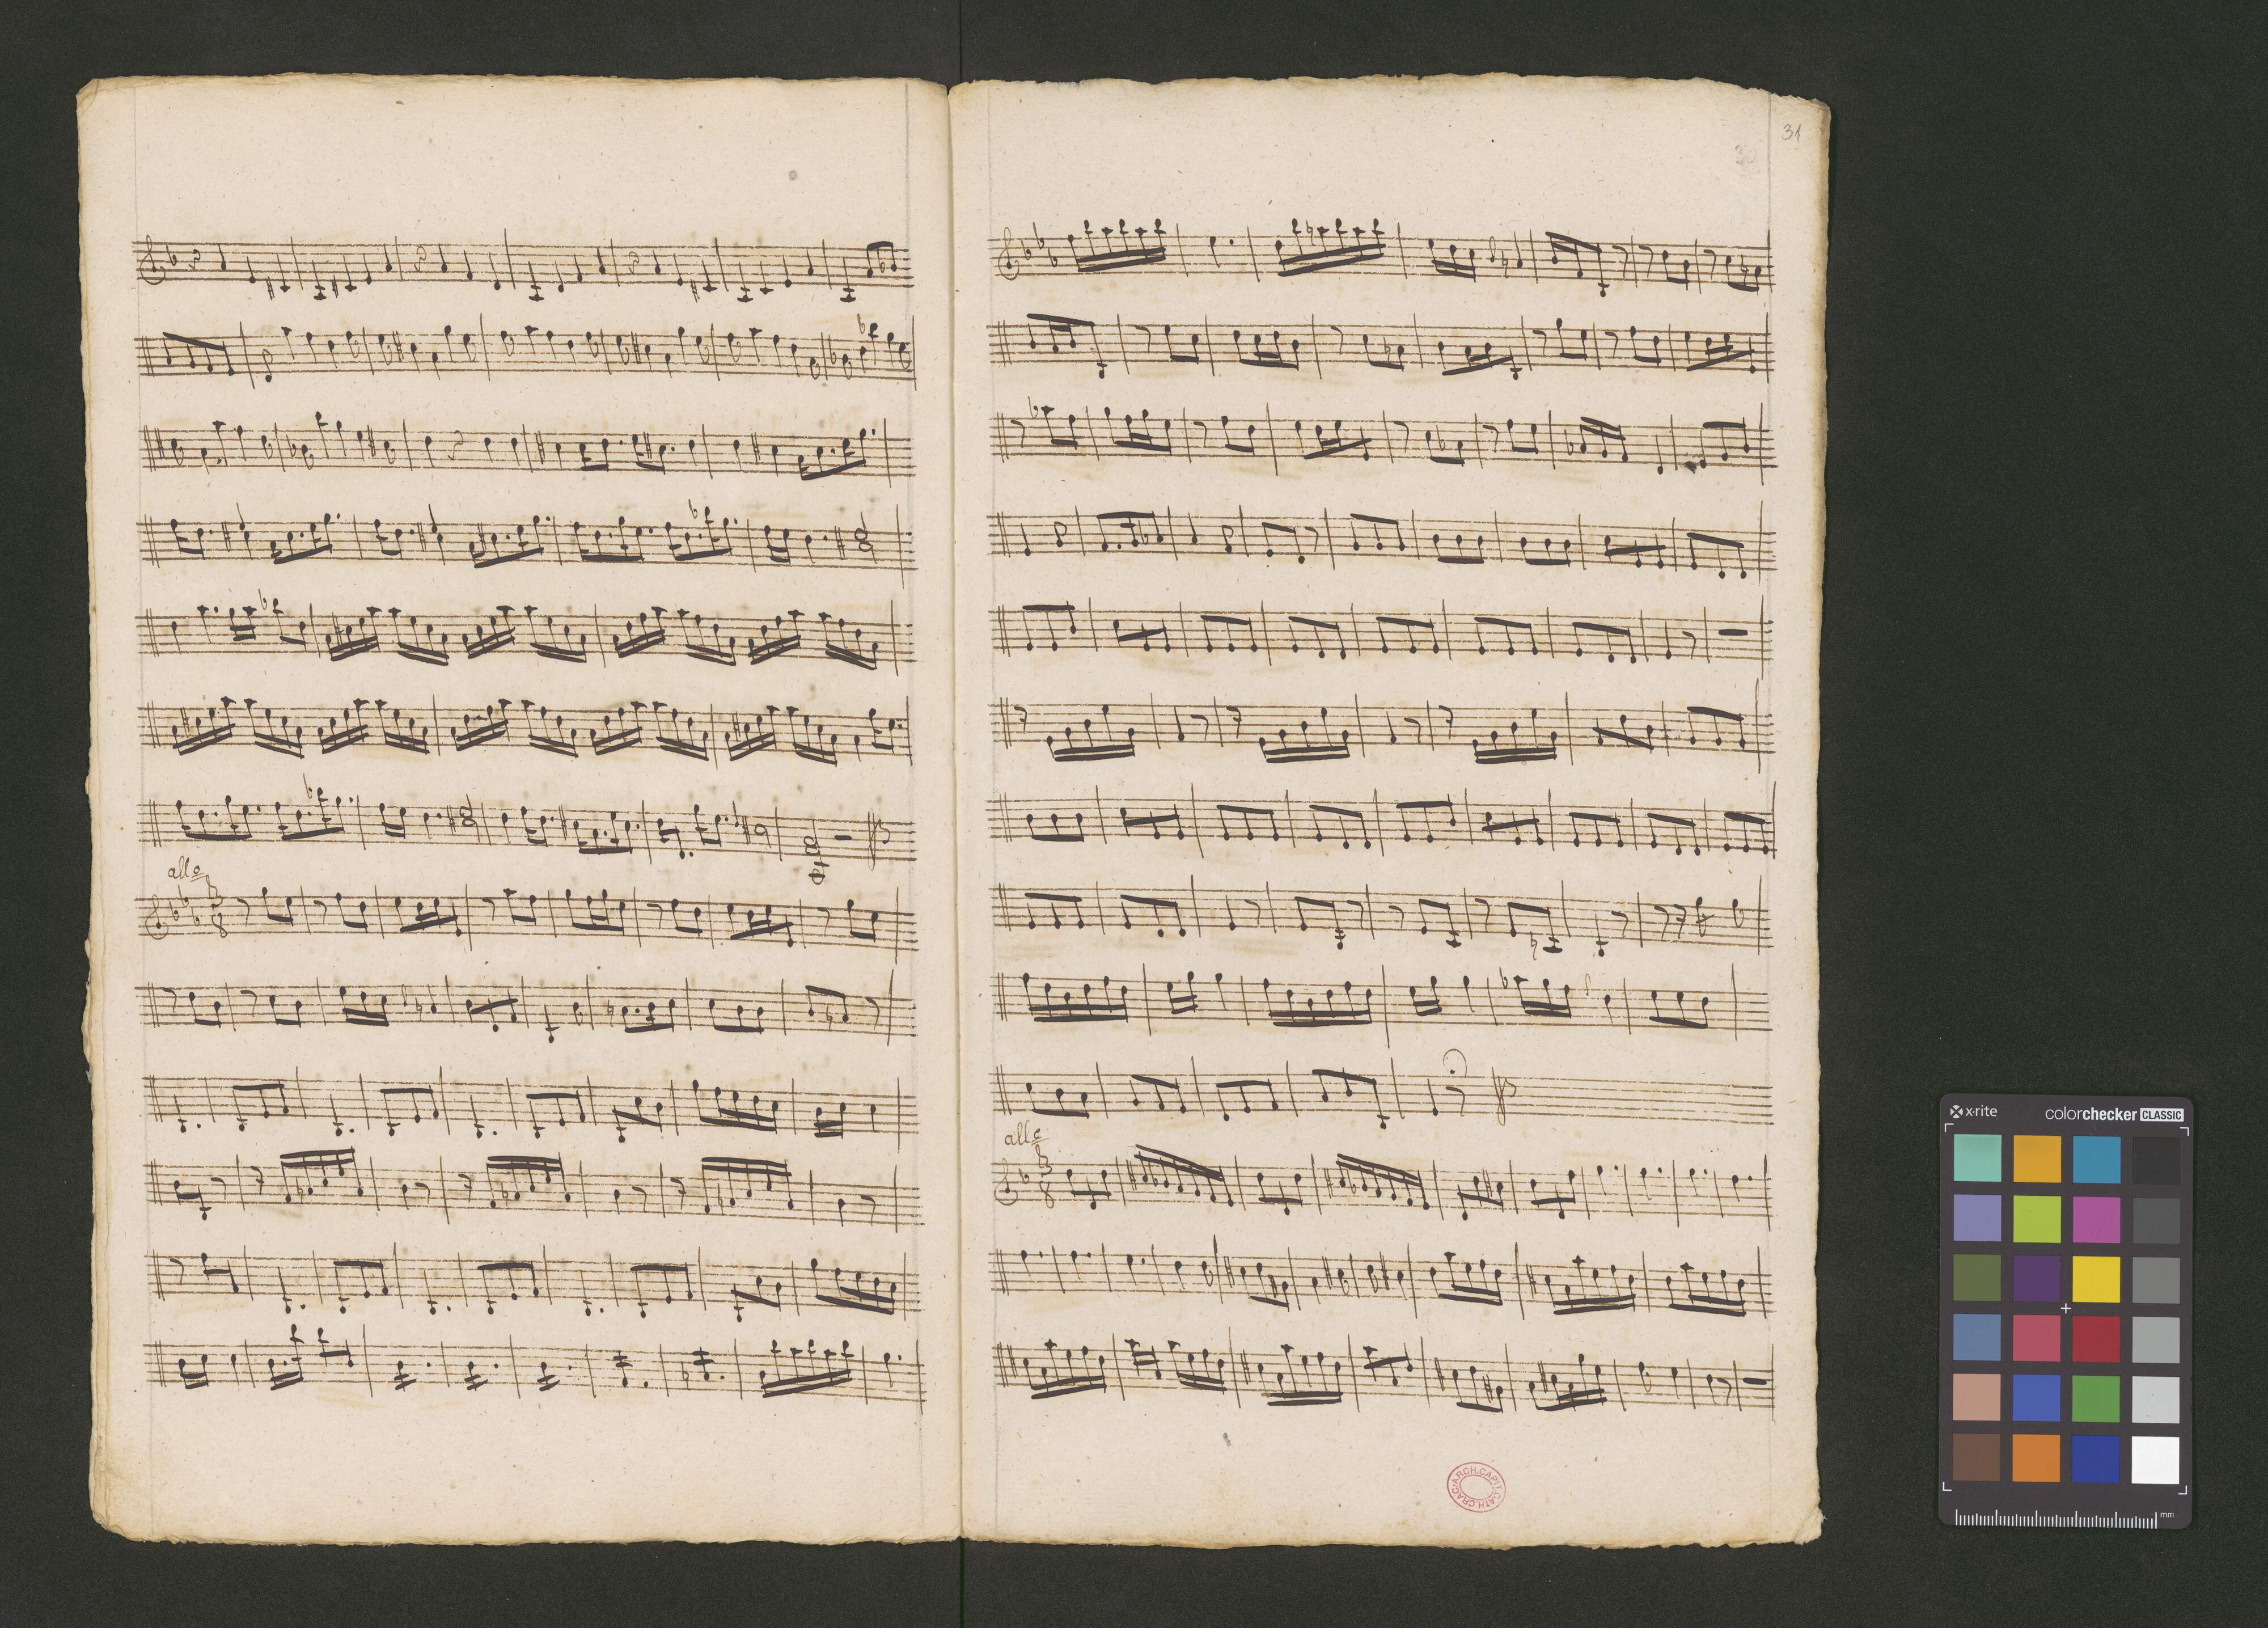 all°
3
8
31
30
all°
3
8
ARCH.CAPIT.CATH.CRAC.
x-rite colorchecker CLASSIC
mm